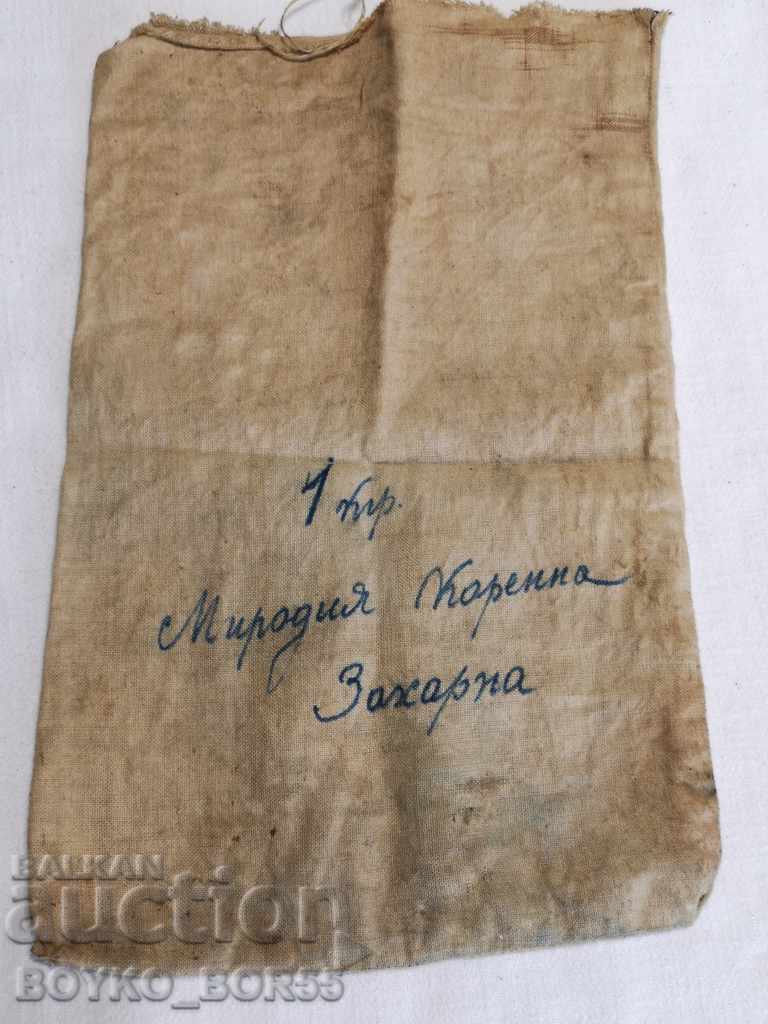 1 кгр.
Миродия Коренна
Захарна
BALKAN
auction
BOYKO_BOR55